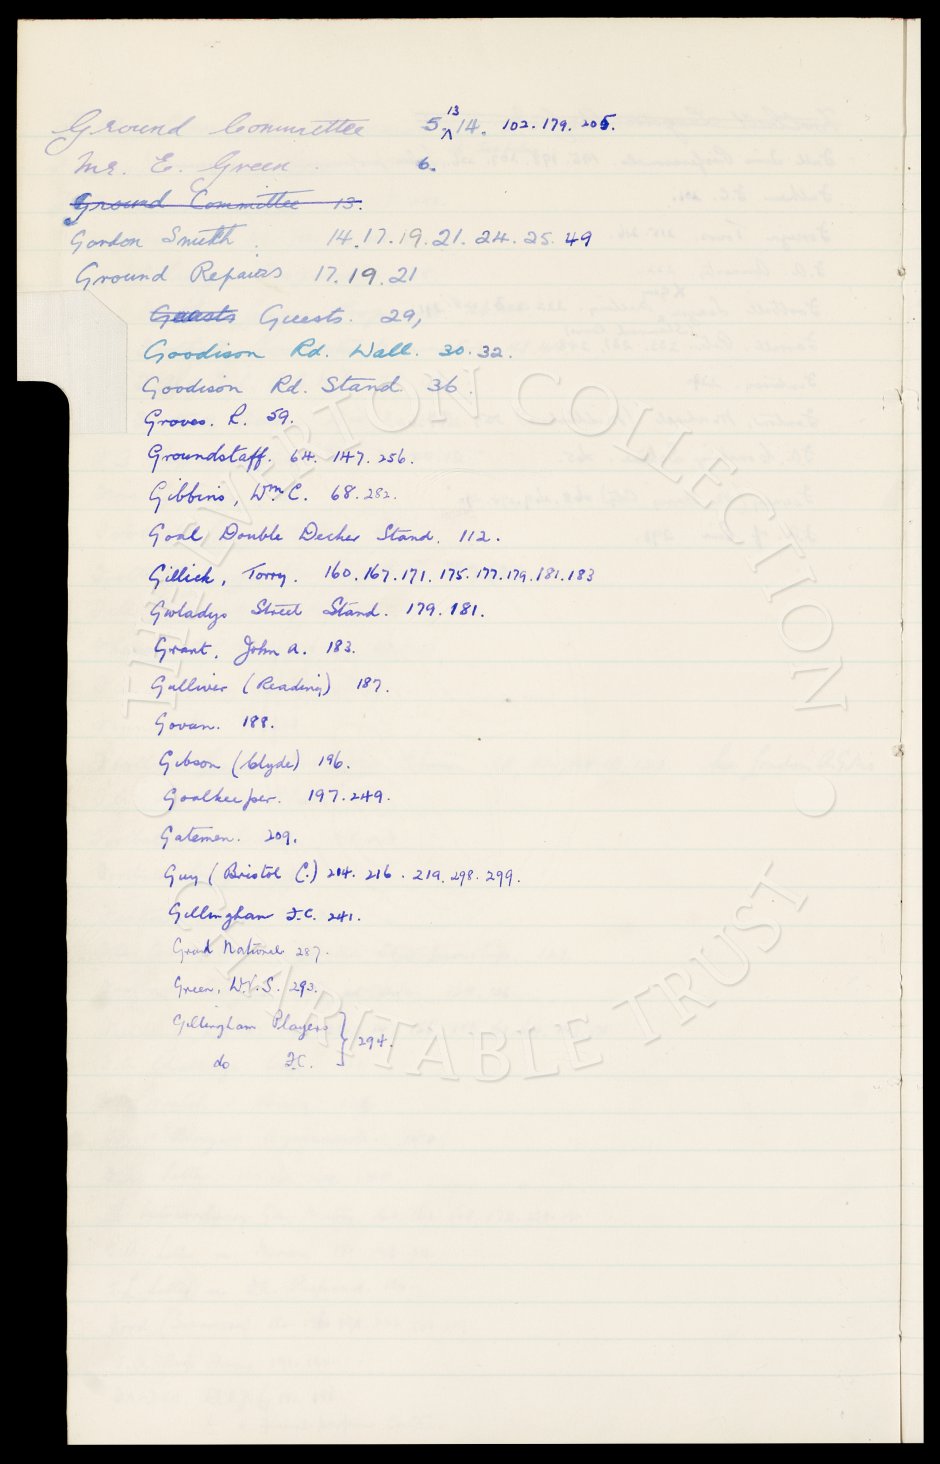 Ground Committee 5. 13 14. 102. 179. 205.
Mr. E. Green. 6.
Ground Committee 13.
Gordon Smith. 14. 17. 19. 21. 24. 25. 49
Ground Repairs 17. 19. 21
Guests Guests. 29,
Goodison Rd. Wall. 30. 32.
Goodison Rd. Stand 36.
Groves. R. 59.
Groundstaff. 64. 147. 256.
Gibbins, Wm C. 68. 282.
Goal Double Decker Stand. 112.
Gillick, Torry. 160. 167. 171. 175. 177. 179. 181. 183
Gwladys Street Stand. 179. 181.
Grant, John A. 183.
Gulliver (Reading) 187.
Govan. 188.
Gibson (Clyde) 196.
Goalkeeper. 197. 249.
Gatemen. 209.
Guy (Bristol C.) 214. 216. 219. 298. 299.
Gillingham F.C. 241.
Grand National 287.
Green, W.V.S. 293.
Gillingham Players } 294.
do F.C.
THE EVERTON COLLECTION
CHARITABLE TRUST